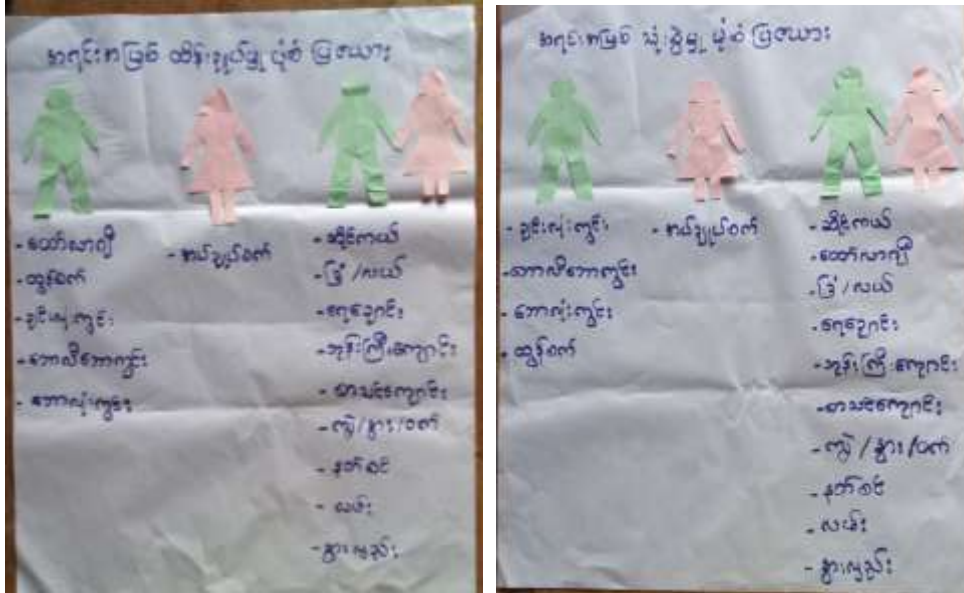 အရင်းအမြစ် ထိန်းချုပ်မှု ပုံစံ ပြဇယား
- ထော်လာဂျီ
- ထွန်စက်
- ခြင်းလုံးကွင်း
- ဘောလီဘောကွင်း
- ဘောလုံးကွင်း
- အပ်ချုပ်စက်
- ဆိုင်ကယ်
- ခြံ/လယ်
- ရေချောင်း
- ဘုန်းကြီးကျောင်း
- စာသင်ကျောင်း
- ကျွဲ/နွား/ဝက်
- နတ်စင်
- လမ်း
- နွားလှည်း
အရင်းအမြစ် သုံးစွဲမှု ပုံစံ ပြဇယား
- ခြင်းလုံးကွင်း
- ဘာလီဘောကွင်း
- ဘောလုံးကွင်း
- ထွန်စက်
- အပ်ချုပ်စက်
- ဆိုင်ကယ်
- ထော်လာဂျီ
- ခြံ/လယ်
- ရေချောင်း
- ဘုန်းကြီးကျောင်း
- စာသင်ကျောင်း
- ကျွဲ/နွား/ဝက်
- နတ်စင်
- လမ်း
- နွားလှည်း